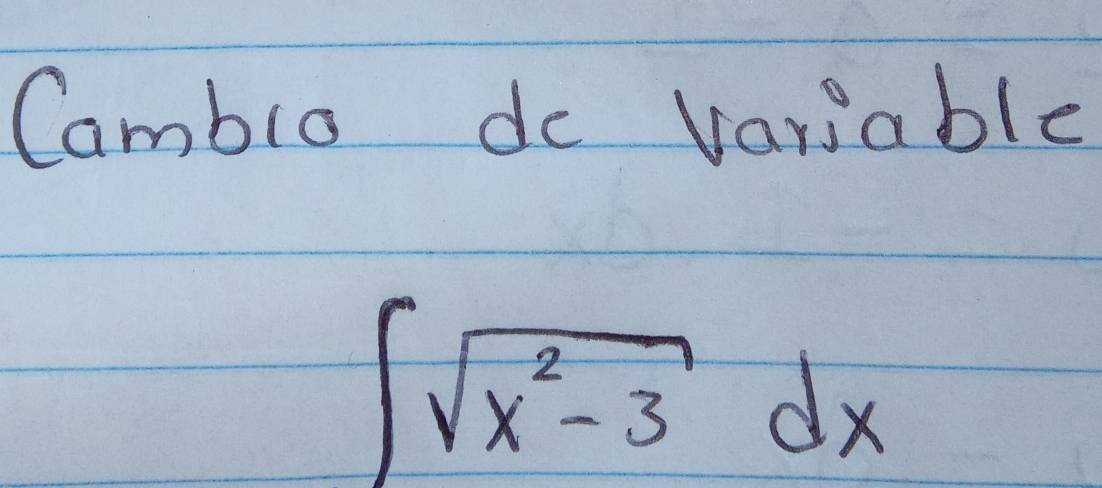 Cambio de Variable
∫ √(x² - 3) dx